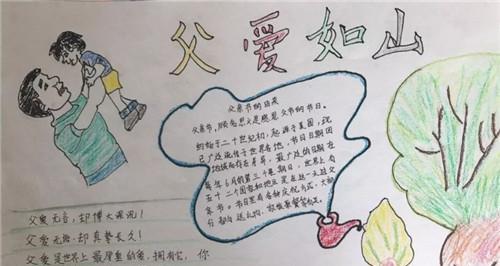 父爱如山
父亲节的由来
父亲节,顾名思义是感恩父亲的节日。
约始于二十世纪初,起源于美国,现
已广泛流传于世界各地,节日日期因
地域而存在差异。最广泛的日期在
每年6月的第三个星期日,世界上有
五十二个国家和地区是在这一天过父
亲节。节日里有各种庆祝方式,大部
分都与送礼物、
父爱无言,却博大深沉!
父爱无私,却真挚长久!
父爱是世界上最厚重的爱,拥有它,你